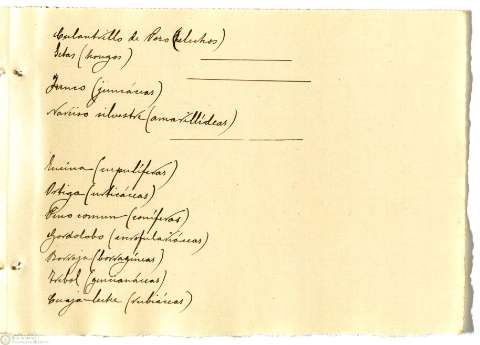 Culantrillo de Pozo (helechos)
Setas (hongos)
Junco (juncáceas)
Narciso silvestre (amarillídeas)
Encina (cupulíferas)
Ortiga (urticáceas)
Pino comun (coníferas)
Gordolobo (escrofulariáceas)
Borraja (borragíneas)
Trebol
Cuaja-leche (rubiáceas)